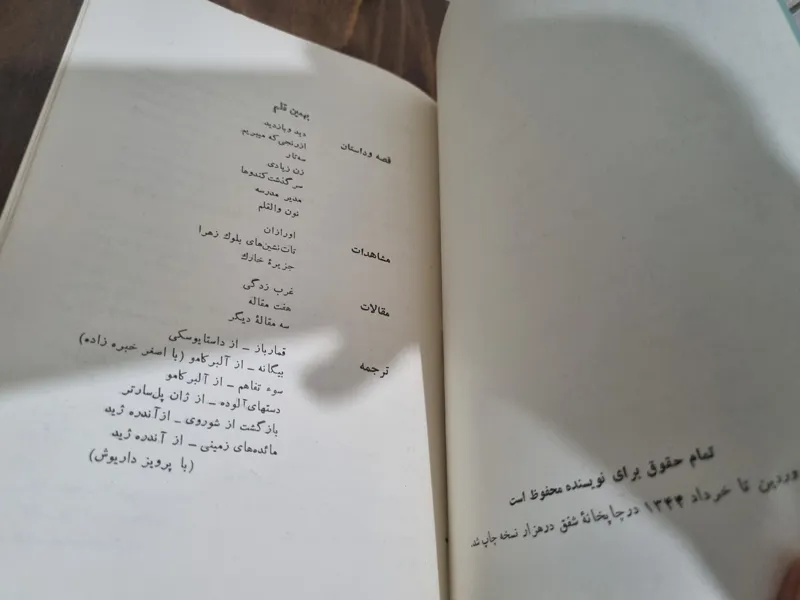 بهمین قلم
قصه وداستان
دید وبازدید
ازرنجی که میبریم
سه‌تار
زن زیادی
سرگذشت کندوها
مدیر مدرسه
نون والقلم
مشاهدات
اورازان
تات‌نشین‌های بلوك زهرا
جزیرهٔ خارك
مقالات
غرب زدگی
هفت مقاله
سه مقالهٔ دیگر
ترجمه
قمارباز ــ از داستایوسکی
بیگانه ــ از آلبرکامو (با اصغر خبره زاده)
سوء تفاهم ــ از آلبرکامو
دستهای‌آلوده ــ از ژان پل‌سارتر
بازگشت از شوروی ــ ازآندره ژید
مائده‌های زمینی ــ از آندره ژید
(با پرویز داریوش)
تمام حقوق برای نویسنده محفوظ است
وردین تا خرداد ۱۳۴۴ درچاپخانهٔ شفق درهزار نسخه چاپ شد